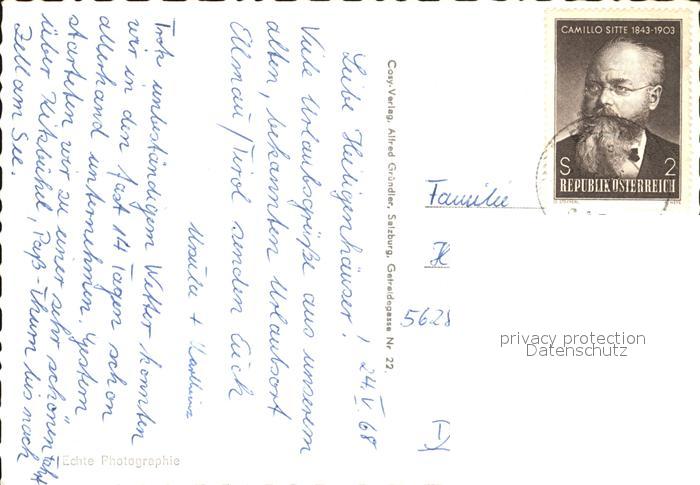 Liebe Heiligenhäuser! 24.V.68
Viele Urlaubsgrüße aus unserem
alten, bekannten Urlaubsort
Ellmau/Tirol senden Euch
Ursula +
Trotz unbeständigem Wetter konnten
wir in den fast 14 Tagen schon
allerhand unternehmen. Gestern
starteten wir zu einer sehr schönen Fahrt
über Kitzbühel, Paß-Thurn bis nach
Zell am See.
Cosy-Verlag, Alfred Gründler, Salzburg, Getreidegasse Nr. 22.
Echte Photographie
CAMILLO SITTE 1843-1903
S 2
REPUBLIK ÖSTERREICH
Familie
H
5628
privacy protection
Datenschutz